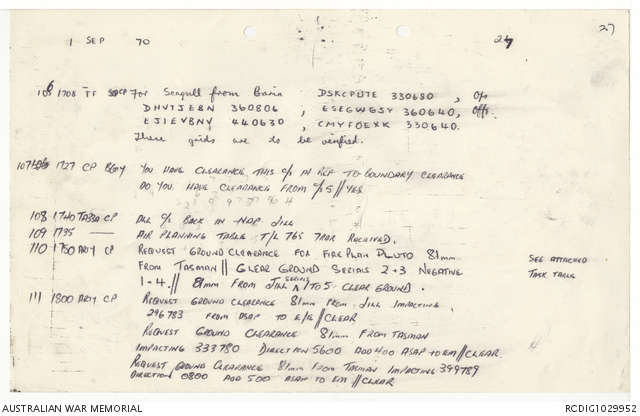 27
1 SEP 70
27
106 1708 TF CP For Seagull from Baria DSKCPUTE 330680, O/s
DHVTJEBN 360806, ESEGWGSY 360640, Offs.
EJIEVBNY 440630, CMYFOEXK 330640.
These grids are to be verified.
107 1727 CP BDY YOU HAVE CLEARANCE THIS C/S IN REF TO BOUNDARY CLEARANCE
DO YOU HAVE CLEARANCE FROM C/S 5 // YES
108 1740 CP ALL C/S BACK IN NDP JILL
109 1735 — AIR PLANNING TABLE T/L 765 7RAR RECEIVED.
110 1750 ARTY CP REQUEST GROUND CLEARANCE FOR FIRE PLAN PLUTO 81mm
SEE ATTACHED
FROM TASMAN // CLEAR GROUND SERIALS 2+3 NEGATIVE
TASK TABLE
1-4. // 81mm FROM JILL SERIALS 1 TO 5 CLEAR GROUND.
111 1800 ARTY CP REQUEST GROUND CLEARANCE 81mm FROM JILL IMPACTING
296783 FROM ASAP TO E/E // CLEAR
REQUEST GROUND CLEARANCE 81mm FROM TASMAN
IMPACTING 333780 DIRECTION 5600 ADD 400 ASAP TO EM // CLEAR
REQUEST GROUND CLEARANCE 81mm FROM TASMAN IMPACTING 399789
DIRECTION 0800 ADD 500 ASAP TO EM // CLEAR
AUSTRALIAN WAR MEMORIAL
RCDIG1029952